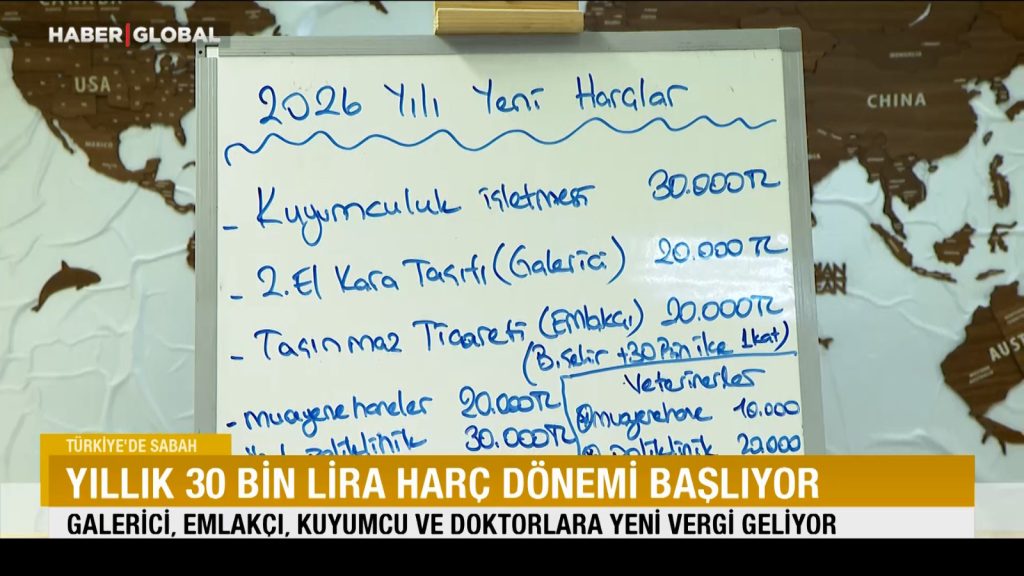 HABER|GLOBAL
USA
MEXICO
CHINA
2026 Yılı Yeni Harçlar
- Kuyumculuk işletmesi 30.000TL
- 2. El Kara Taşıtı (Galerici) 20.000 TL
- Taşınmaz Ticareti (Emlakçı) 20.000TL
(B.şehir +30 Bin ilçe 1 kat)
- muayenehaneler 20.000TL
poliklinik 30.000TL
Veterinerler
muayenehane 10.000
poliklinik 20.000
TÜRKİYE'DE SABAH
YILLIK 30 BİN LİRA HARÇ DÖNEMİ BAŞLIYOR
GALERİCİ, EMLAKÇI, KUYUMCU VE DOKTORLARA YENİ VERGİ GELİYOR